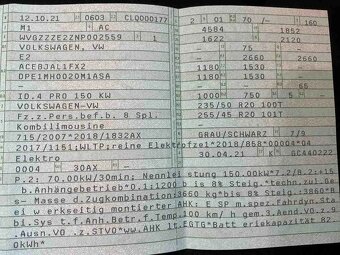 12.10.21 0603 CLQ000177
M1 AC
WVGZZZE2ZNP002559 1
VOLKSWAGEN, VW
E2
ACEBJAL1FX2
DPE1MH0020M1ASA
—
ID.4 PRO 150 KW
VOLKSWAGEN-VW
Fz.z.Pers.bef.b. 8 Spl.
Kombilimousine
715/2007*2018/1832AX
2017/1151;WLTP;reine Elektrofzei
Elektro
0004 30AX —
2 01 70/— 160
4584 1852
1622 2120
— 75 —
— 2660 —
1180 1530 —
1180 1530 —
—
1000 750 5 —
235/50 R20 100T
255/45 R20 101T
—
GRAU/SCHWARZ 7/9
2018/858*00004*04
30.04.21 K GC440222
P.2: 70.00kW/30min; Nennleistung 150.00kW*7.2/8.2:+15
b.Anhängebetrieb*0.1:1200 b.bis 8% Steig.*techn.zul.Ge
s- Masse d.Zugkombination:3660 kg*bis 8% Steig.:3860*B
ei w erkseitig montierter AHK: E SP m.spez.Fahrdyn.Sta
bi.Sys t.f.Anh.Betr.f.Temp.100 km/ h gem.3.Aend.VO.z.9
.Ausn.VO .z.STVO*ww.AHK lt.EGTG*Batt eriekapazität 82.
0kWh*